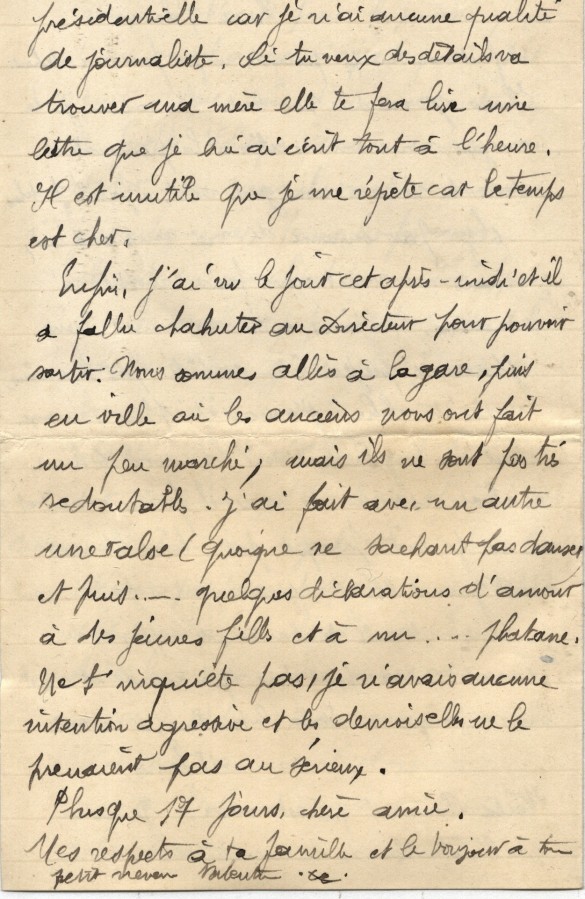 présidentielle car je n'ai aucune qualité
de journaliste. Si tu veux des détails va
trouver ma mère elle te fera lire une
lettre que je lui ai écrit tout à l'heure.
Il est inutile que je me répète car le temps
est cher.
Enfin, j'ai vu le jour cet après-midi et il
a fallu chahuter au Directeur pour pouvoir
sortir. Nous sommes allés à la gare, puis
en ville où les anciens nous ont fait
un peu marché, mais ils ne sont pas très
redoutables. J'ai fait avec un autre
une valse (quoique ne sachant pas danser)
et puis..... quelques déclarations d'amour
à des jeunes filles et à un .... platane.
Ne t'inquiéte pas, je n'avais aucune
intention agressive et les demoiselles ne le
prenaient pas au sérieux.
Plus que 17 jours, chère amie.
Mes respects à ta famille et le bonjour à ton
petit neveu